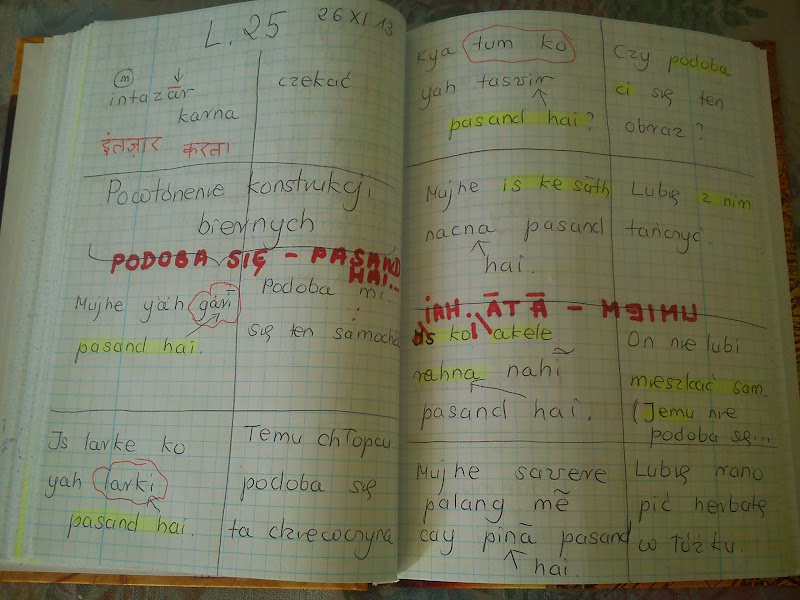 L. 25 26 XI 13
m
intazār
karna
इंतज़ार करना
czekać
Powtórzenie konstrukcji
biernych
PODOBA SIĘ - PASAND
HAI...
Mujhe yah gārī
pasand hai.
Podoba mi
się ten samochód
Is larke ko
yah larki
pasand hai.
Temu chłopcu
podoba się
ta dziewczyna
Kya tum ko
yah tasvir
pasand hai?
Czy podoba
ci się ten
obraz?
Mujhe is ke sath
nacna pasand
hai.
Lubię z nim
tańczyć.
ĀTĀ
Us ko akele
rahna nahĩ
pasand hai.
On nie lubi
mieszkać sam.
(Jemu nie
podoba się...
Mujhe savere
palang mẽ
cay pīnā pasand
hai.
Lubię rano
pić herbatę
w łóżku.